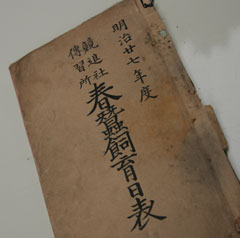 明治廿七年度
競進社
傳習所
春蠶飼育日表